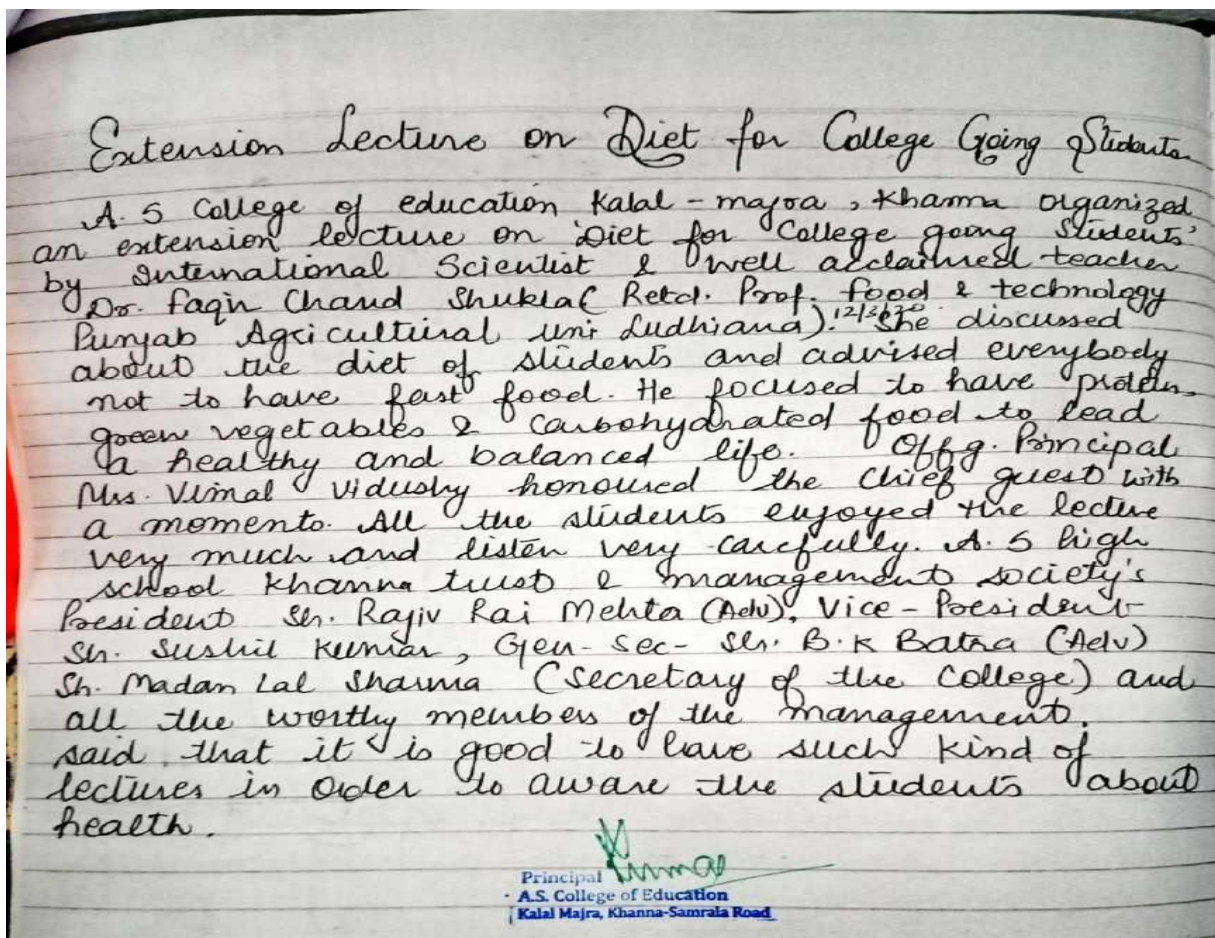 Extension Lecture on Diet for College Going Students
A. S College of education Kalal - majra, Khanna organized
an extension lecture on Diet for College going Students'
by International Scientist & well acclaimed teacher
Dr. Faqir Chand Shukla( Retd. Prof. food & technology
Punjab Agricultural Uni Ludhiana). She discussed
about the diet of students and advised everybody
not to have fast food. He focused to have protein,
green vegetables & carbohydrated food to lead
a healthy and balanced life. Offg. Principal
Mrs. Vimal Vidushy honoured the Chief guest with
a momento. All the students enjoyed the lecture
very much and listen very carefully. A. S high
school Khanna trust & management society's
President Sh. Rajiv Rai Mehta (Adv), Vice - President
Sh. Sushil Kumar, Gen - Sec - Sh. B. K Batra (Adv)
Sh. Madan Lal Sharma (Secretary of the College) and
all the worthy members of the management.
said that it is good to have such kind of
lectures in order to aware the students about
health.
Principal
A.S. College of Education
Kalal Majra, Khanna-Samrala Road